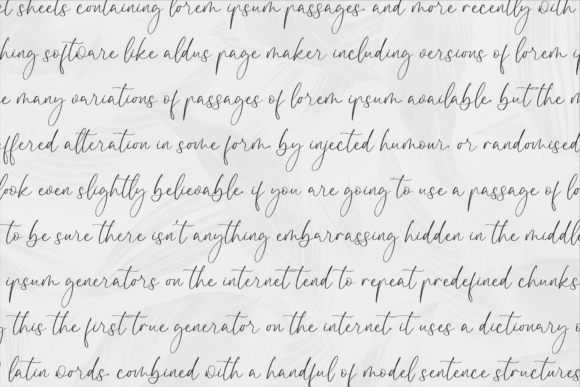 et sheets containing lorem ipsum passages. and more recently with
hing software like aldus page maker including versions of lorem ip
e many variations of passages of lorem ipsum available. but the m
uffered alteration in some form. by injected humour. or randomised
look even slightly believable. if you are going to use a passage of lo
to be sure there isn't anything embarrassing hidden in the middle
ipsum generators on the internet tend to repeat predefined chunks
g this the first true generator on the internet. it uses a dictionary o
latin words. combined with a handful of model sentence structures